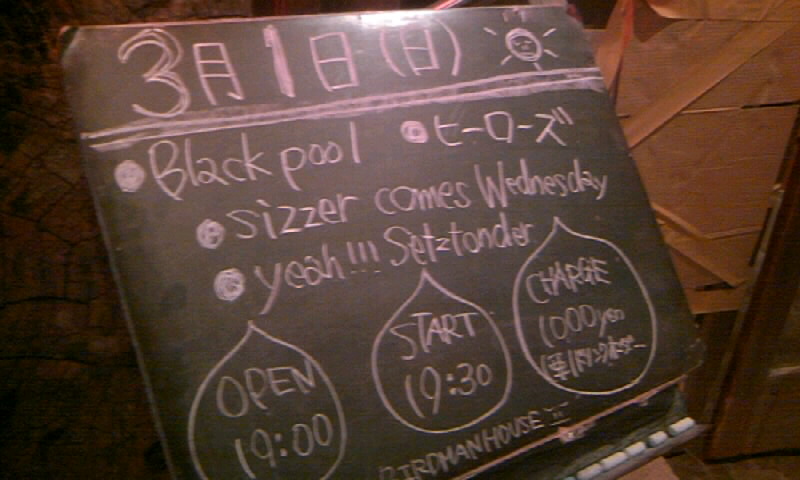 3月1日(日)
●Blackpool ●ヒーローズ
●sizzer comes Wednesday
●yeah!!! Setztonder
OPEN
19:00
START
19:30
CHARGE
1000yen
BIRDMANHOUSE